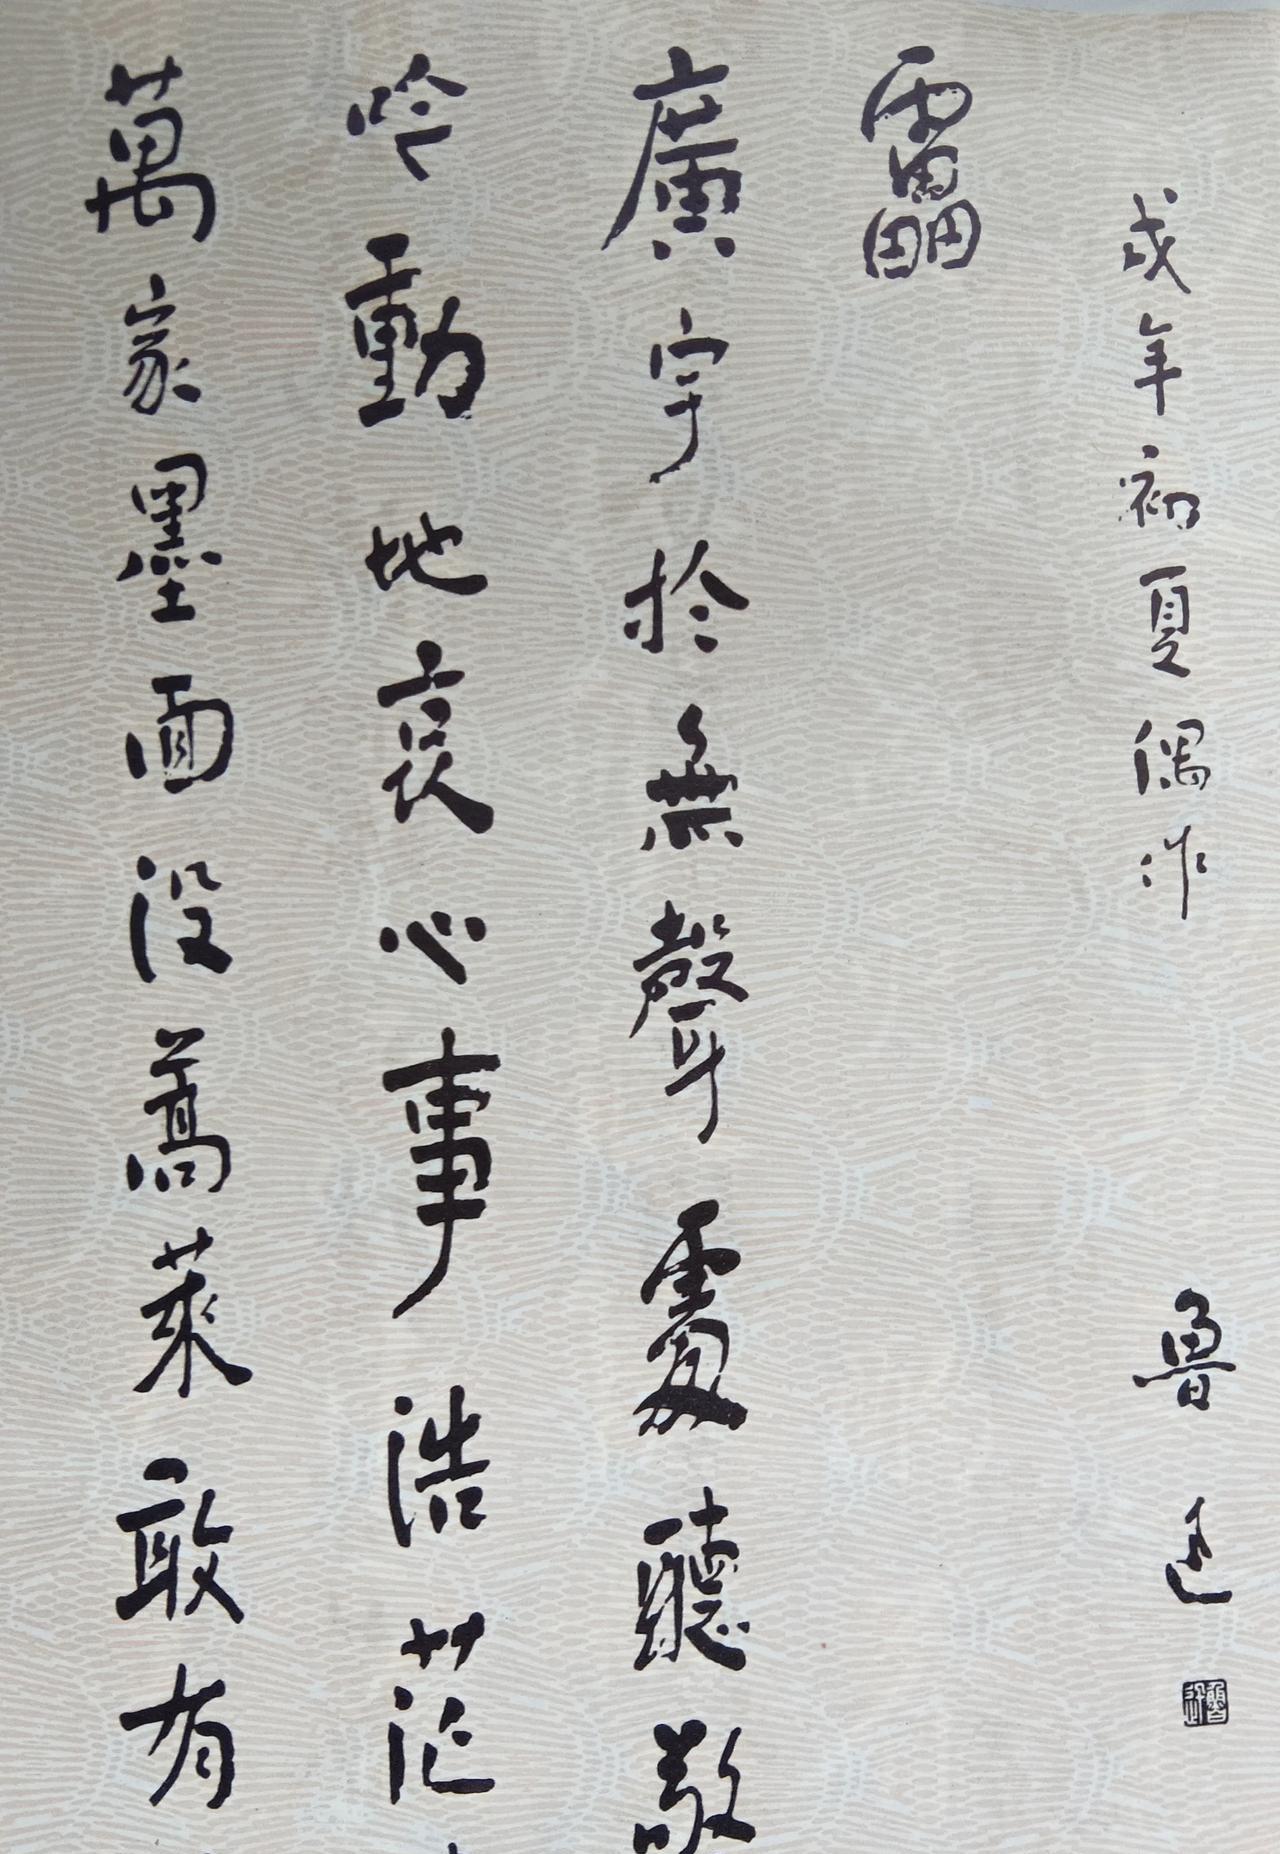 萬家墨面没蒿萊敢有
吟動地哀心事浩茫
廣宇於無聲處聽驚
靁
戌年初夏偶作
魯迅
魯迅